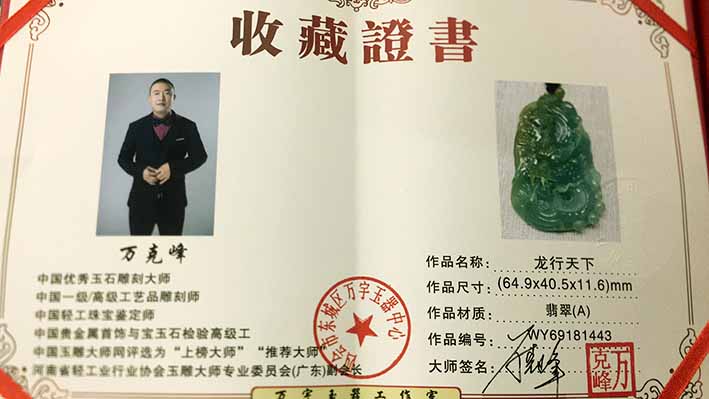 收藏證書
万克峰
中国优秀玉石雕刻大师
中国一级/高级工艺品雕刻师
中国轻工珠宝鉴定师
中国贵金属首饰与宝玉石检验高级工
中国玉雕大师网评选为“上榜大师”“推荐大师”
河南省轻工业行业协会玉雕大师专业委员会(广东)副会长
会市东城区万宇玉器中心
作品名称: 龙行天下
作品尺寸: (64.9x40.5x11.6)mm
作品材质: 翡翠(A)
作品编号: WY69181443
大师签名:
万克峰
万宇玉器工作室